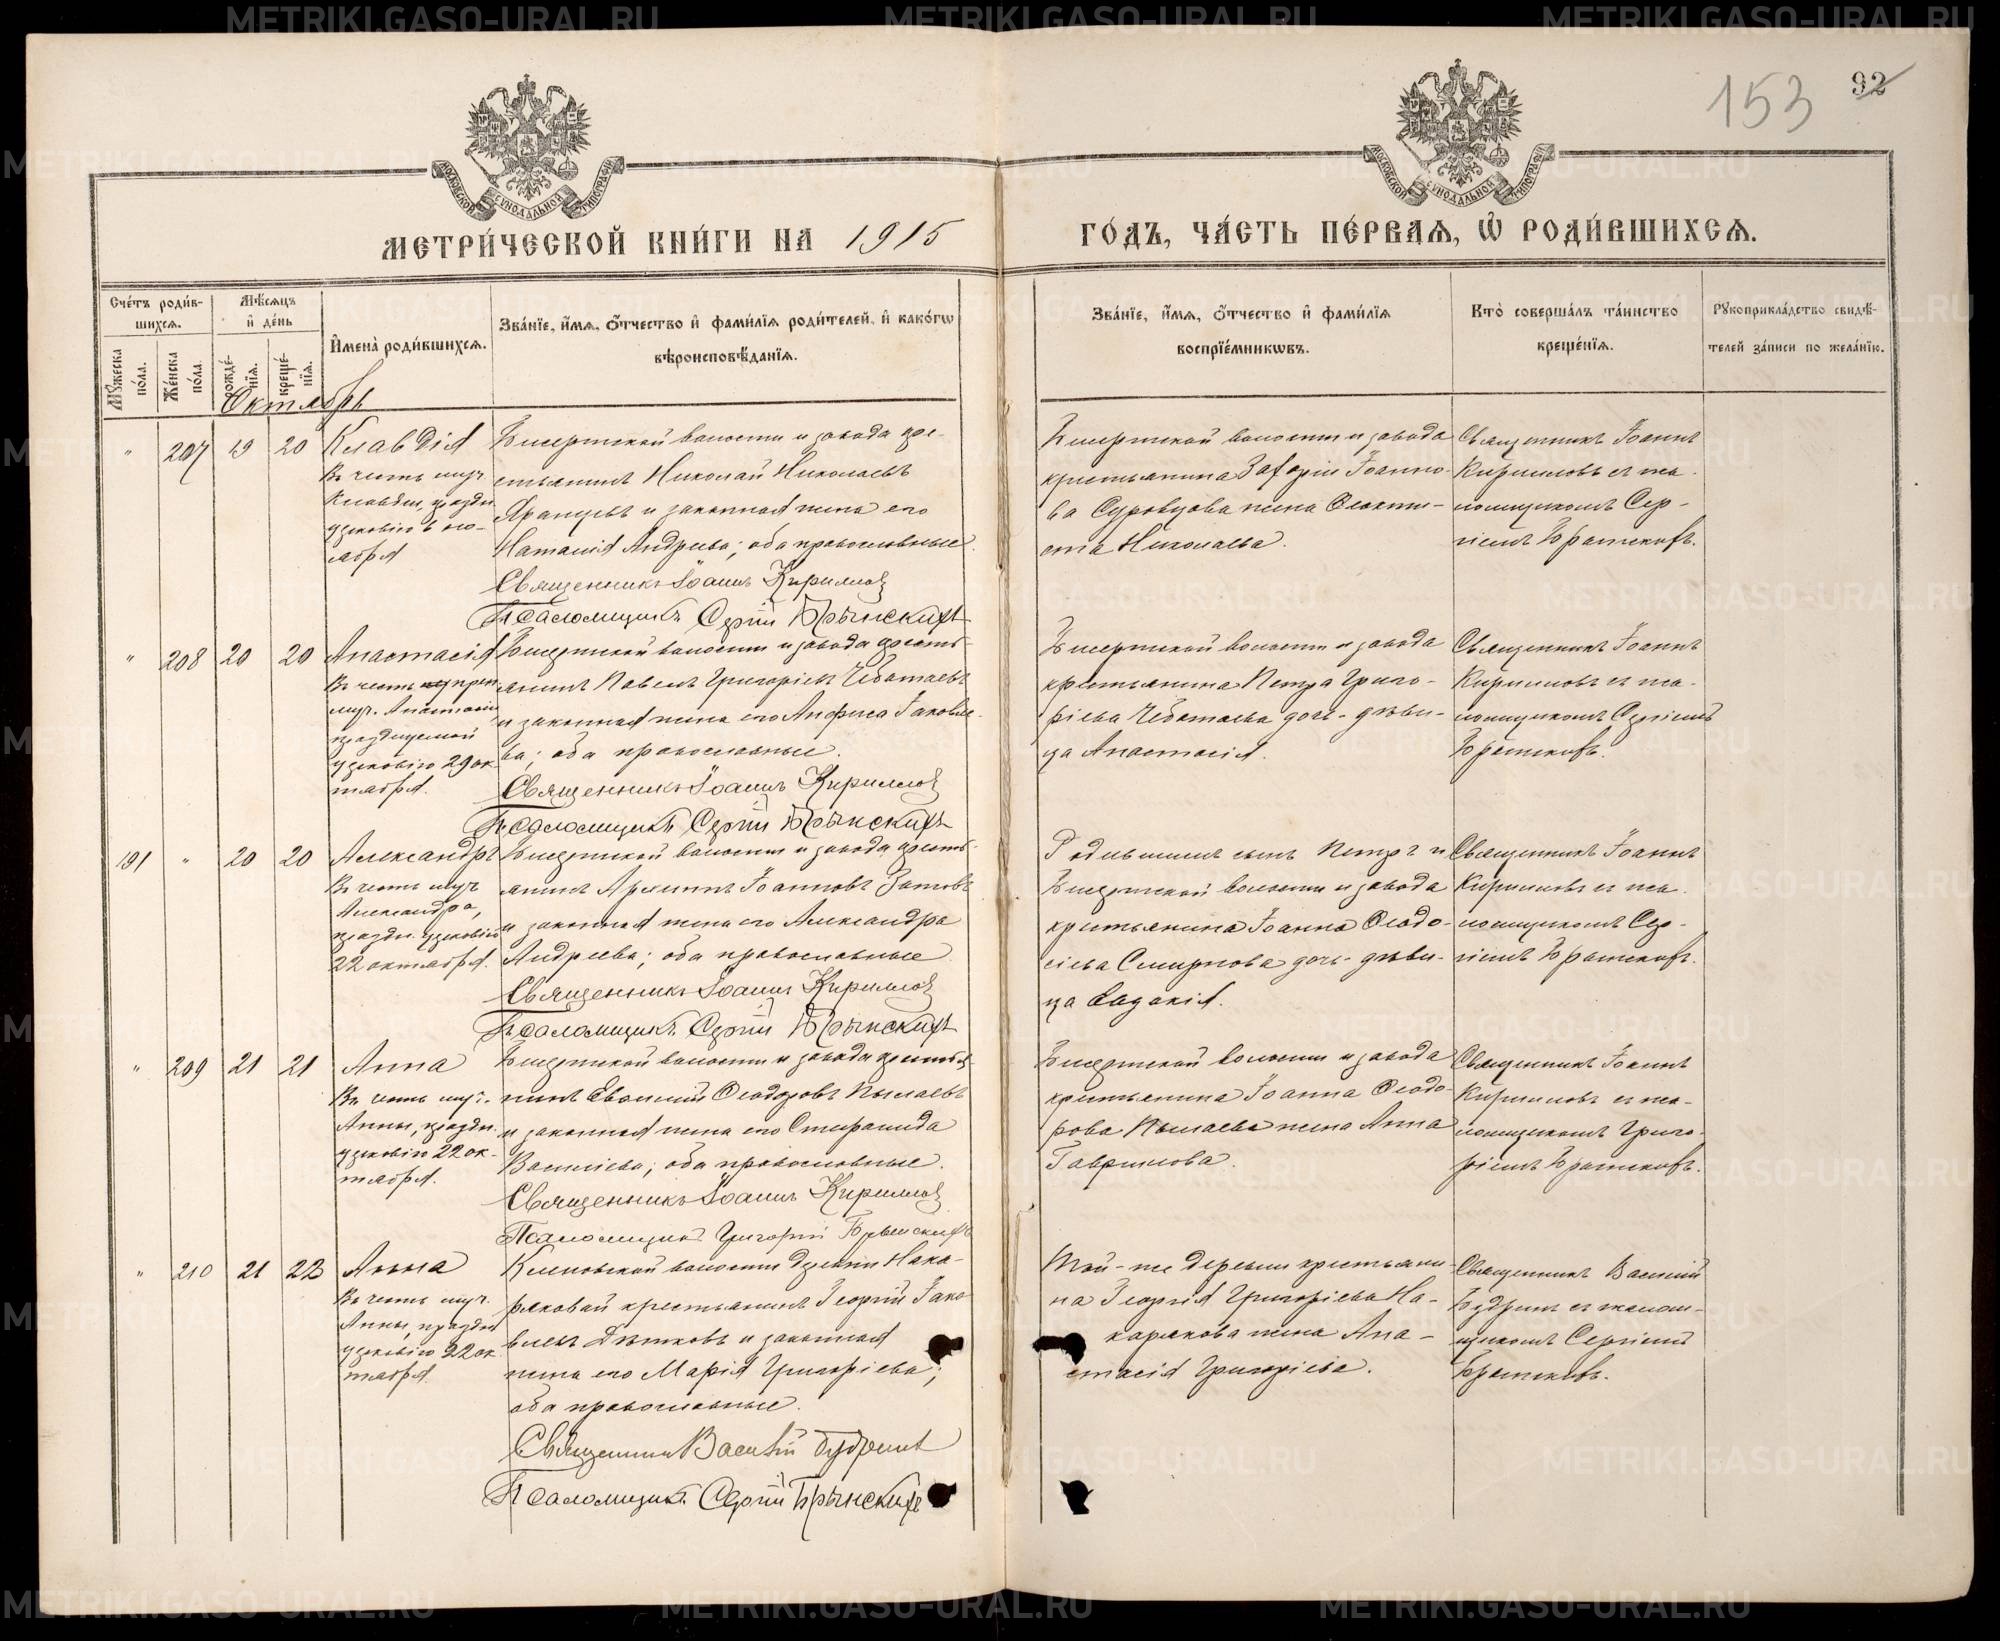 153 92
МОСКОВСКОЙ СѴНОДАЛЬНОЙ ТИПОГРАФІИ
МОСКОВСКОЙ СѴНОДАЛЬНОЙ ТИПОГРАФІИ
МЕТРИ́ЧЕСКОЙ КНИ́ГИ НА 1915
ГО́ДЪ, ЧА́СТЬ ПЕ́РВАѦ, Ѡ҆ РОДИ́ВШИХСѦ.
Сче́тъ роди́в-
шихсѧ.
Мѣ́сѧцъ
и҆ де́нь
Мꙋ́жеска
по́ла.
Же́нска
по́ла.
рожде́-
нїѧ.
креще́-
нїѧ.
И҆мена̀ роди́вшихсѧ.
Зва́нїе, и҆́мѧ, ѻ҆́тчество и҆ фами́лїѧ роди́телей, и҆ како́гѡ
вѣроисповѣ́данїѧ.
Зва́нїе, и҆́мѧ, ѻ҆́тчество и҆ фами́лїѧ
воспрїе́мникѡвъ.
Кто̀ соверша́лъ та́инство
креще́нїѧ.
Рꙋкоприкла́дство свидѣ́-
телей за́писи по жела́нїю.
Октябрь
" 207 19 20 Клавдія
Въ честь муч.
Клавдіи, праздн.
церковію 6 ок-
тября
Бисертской волости и завода кре-
стьянинъ Николай Николаевъ
и законная жена его
Наталія Андреева; оба православные.
Священникъ Іоаннъ Кирилловъ
Псаломщикъ Сергій Брынскихъ
Бисертской волости и завода
крестьянина Захаріи Іоанно-
ва Суровцова жена Ѳеокти-
ста Николаева.
Священникъ Іоаннъ
Кирилловъ съ пса-
ломщикомъ Сер-
гіемъ
" 208 20 20 Анастасія
Въ честь преп.
муч. Анастасіи
празднуемой
церковію 29 ок
тября.
Бисертской волости и завода кресть-
янинъ Павелъ Григоріевъ Чеботаевъ
и законная жена его Анфиса Іаковле-
ва; оба православные.
Священникъ Іоаннъ Кирилловъ
Псаломщикъ Сергій Брынскихъ
Бисертской волости и завода
крестьянина Петра Григо-
ріева Чеботаева дочь-дѣви-
ца Анастасія.
Священникъ Іоаннъ
Кирилловъ съ пса-
ломщикомъ Сергіемъ
191 " 20 20 Александръ
Въ честь муч.
Александра,
праздн. церковію
22 октября.
Бисертской волости и завода кресть-
янинъ Іоанновъ Зотовъ
и законная жена его Александра
Андреева; оба православные.
Священникъ Іоаннъ Кирилловъ
Псаломщикъ Сергій Брынскихъ
Родившихъ сынъ Петръ и
Бисертской волости и завода
крестьянина Іоанна Ѳеодо-
сіева Смирнова дочь-дѣви-
ца Евдокія.
Священникъ Іоаннъ
Кирилловъ съ пса-
ломщикомъ Сер-
гіемъ
" 209 21 21 Анна
Въ честь муч.
Анны, праздн.
церковію 22 ок-
тября.
Бисертской волости и завода крестья-
нинъ Евгеній Ѳеодоровъ Пылаевъ
и законная жена его Стефанида
Василіева; оба православные.
Священникъ Іоаннъ Кирилловъ
Псаломщикъ Григорій Брынскихъ
Бисертской волости и завода
крестьянина Іоанна Ѳеодо-
рова Пылаева жена Анна
Гаврилова.
Священникъ Іоаннъ
Кирилловъ съ пса-
ломщикомъ Григо-
ріемъ
" 210 21 22 Анна
Въ честь муч.
Анны, праздн.
церковію 22 ок
тября.
Кленовской волости деревни Нака-
ряковой крестьянинъ Георгій Іако-
влевъ и законная
жена его Марія Григоріева;
оба православные.
Священникъ Василій Будринъ
Псаломщикъ Сергій Брынскихъ
Той-же деревни крестьяни-
на Георгія Григоріева На-
карякова жена Ана-
стасія Григоріева.
Священникъ Василій
Будринъ съ псалом-
щикомъ Сергіемъ
METRIKI.GASO-URAL.RU